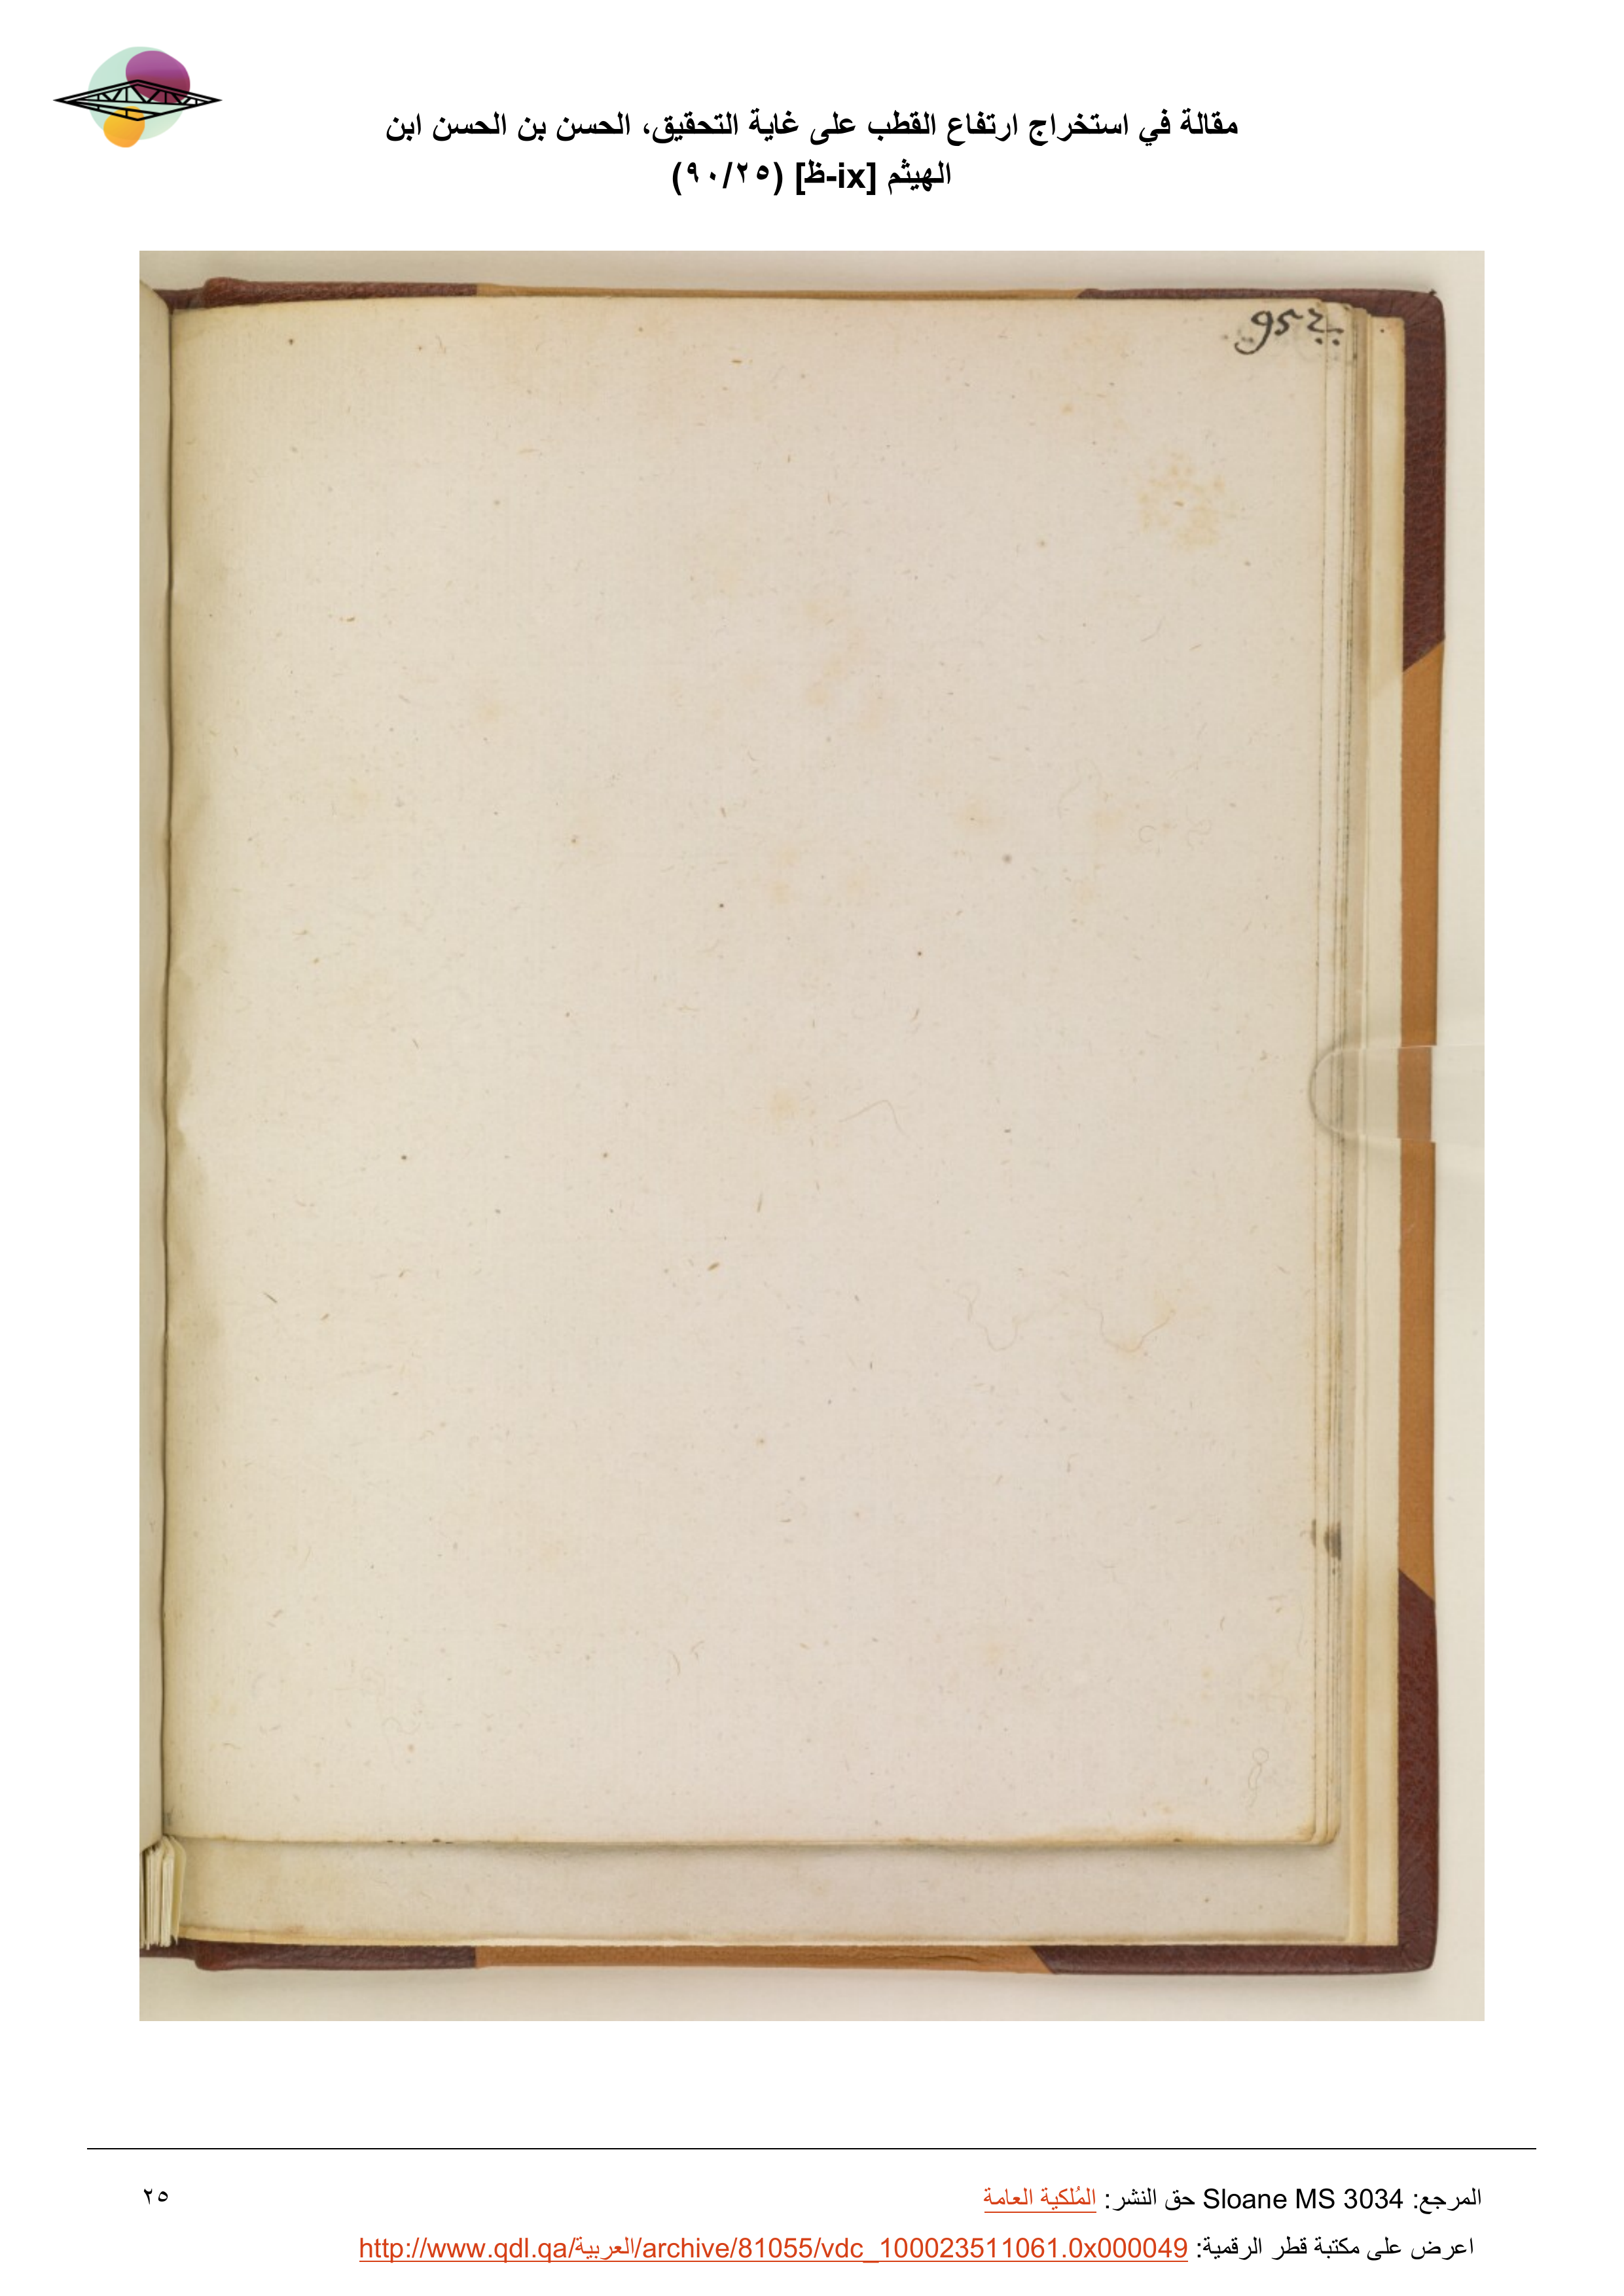 مقالة في استخراج ارتفاع القطب على غاية التحقيق، الحسن بن الحسن ابن
الهيثم [ix-ظ] (٩٠/٢٥)
952
المرجع: Sloane MS 3034 حق النشر: المُلكية العامة
٢٥
اعرض على مكتبة قطر الرقمية: http://www.qdl.qa/العربية/archive/81055/vdc_100023511061.0x000049